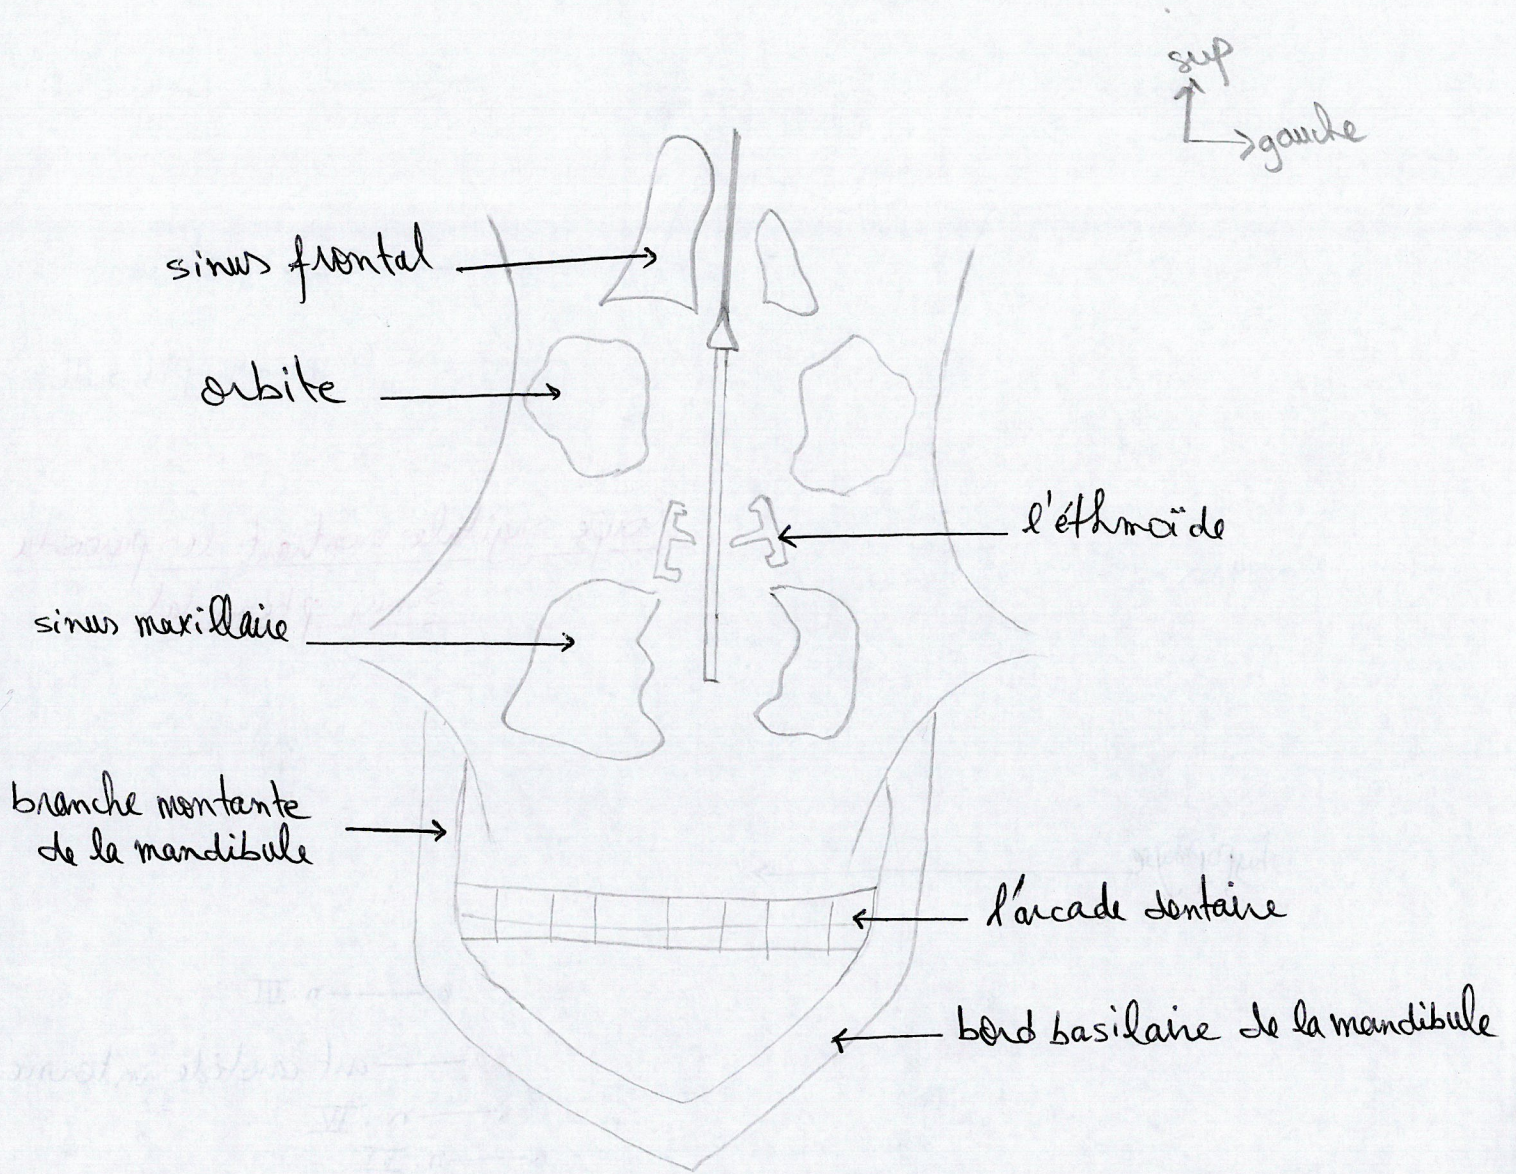 sup
gauche
sinus frontal
orbite
l'éthmoïde
sinus maxillaire
branche montante
de la mandibule
l'arcade dentaire
bord basilaire de la mandibule